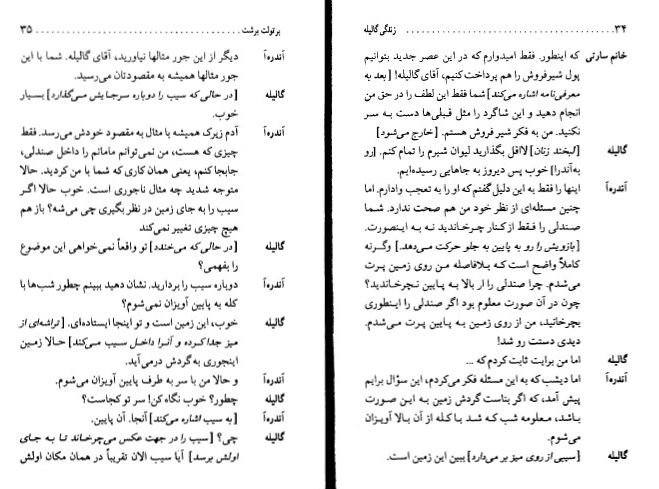 ۳۴ زندگی گالیله
خانم سارتی که اینطور. فقط امیدوارم که در این عصر جدید بتوانیم
پول شیرفروش را هم پرداخت کنیم، آقای گالیله! [بعد به
معرفی‌نامه اشاره می‌کند] شما فقط این لطف را در حق من
انجام دهید و این شاگرد را مثل قبلی‌ها دست به سر
نکنید. من به فکر شیر فروش هستم. [خارج می‌شود]
گالیله [لبخند زنان] لااقل بگذارید لیوان شیرم را تمام کنم. [رو
به‌آندرا] خوب پس دیروز به جاهایی رسیده‌ایم.
آندره‌آ اینها را فقط به این دلیل گفتم‌که او را به تعجب وادارم. اما
چنین مسئله‌ای از نظر خود من هم صحت ندارد. شما
صندلی را فقط از کنار چرخاندید نه به اینصورت.
[بازویش را رو به پایین به جلو حرکت می‌دهد.] وگرنه
کاملاً واضح است که بلافاصله من روی زمین پرت
می‌شدم. چرا صندلی را از بالا به پایین نچرخاندید؟
چون در آن صورت معلوم بود اگر صندلی را اینطوری
بچرخانید، من از روی زمین به پایین پرت می‌شدم.
دیدی دستت رو شد!
گالیله اما من برایت ثابت کردم که ...
آندره‌آ اما دیشب که به این مسئله فکر می‌کردم، این سؤال برایم
پیش آمد، که اگر بناست گردش زمین به این صورت
باشد، معلومه شب که شد با کله از آن بالا آویزان
می‌شوم.
گالیله [سیبی از روی میز بر می‌دارد] ببین این زمین است.
برتولت برشت ۳۵
آندره‌آ دیگر از این جور مثالها نیاورید، آقای گالیله. شما با این
جور مثالها همیشه به مقصودتان می‌رسید.
گالیله [در حالی که سیب را دوباره سرجایش می‌گذارد] بسیار
خوب.
آندره‌آ آدم زیرک همیشه با مثال به مقصود خودش می‌رسد. فقط
چیزی که هست، من نمی‌توانم مامانم را داخل صندلی،
جابجا کنم، یعنی همان کاری که شما با من کردید. حالا
متوجه شدید چه مثال ناجوری است. خوب حالا اگر
سیب را به جای زمین در نظر بگیری چی می‌شه؟ باز هم
هیچ چیزی تغییر نمی‌کند
گالیله [در حالی که می‌خندد] تو واقعاً نمی‌خواهی این موضوع
را بفهمی؟
آندره‌آ دوباره سیب را بردارید. نشان دهید ببینم چطور شب‌ها با
کله به پایین آویزان نمی‌شوم؟
گالیله خوب، این زمین است و تو اینجا ایستاده‌ای. [تراشه‌ای از
میز جدا کرده و آنرا داخل سیب می‌کند] حالا زمین
اینجوری به گردش درمی‌آید.
آندره‌آ و حالا من با سر به طرف پایین آویزان می‌شوم.
گالیله چطور؟ خوب نگاه کن! سر تو کجاست؟
آندره‌آ [به سیب اشاره می‌کند] آنجا. آن پایین.
گالیله چی؟ [سیب را در جهت عکس می‌چرخاند تا به جای
اولش برسد] آیا سیب الان تقریباً در همان مکان اولش